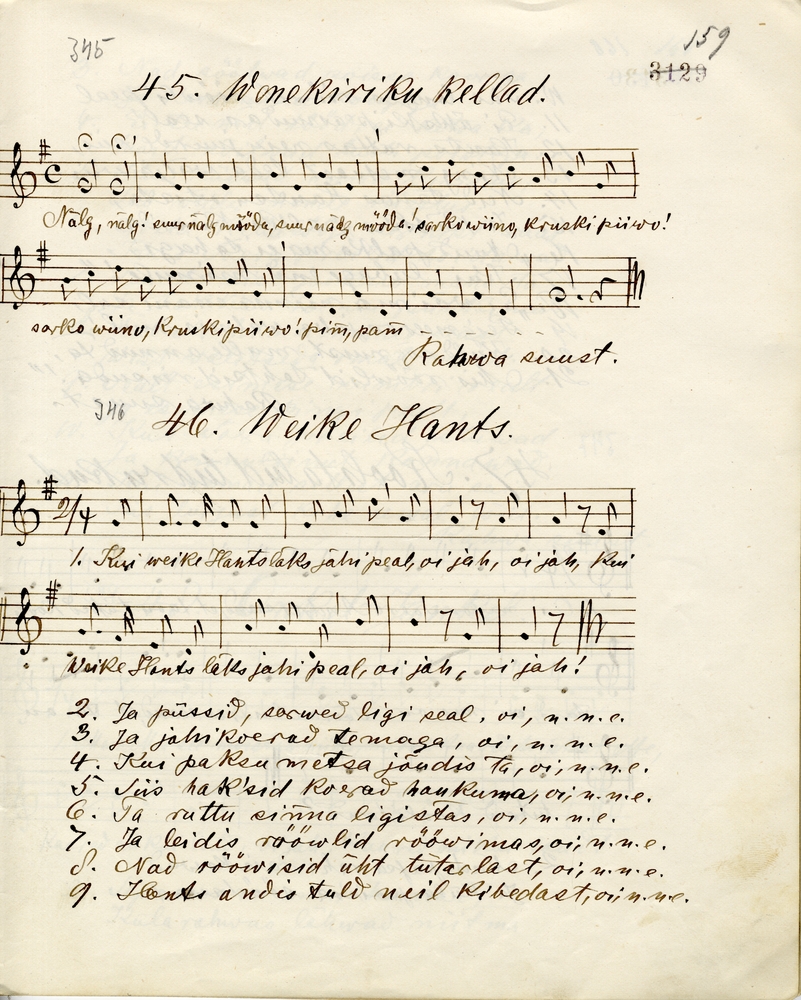 345
159
3129
45. Wenekiriku kellad.
Nälg, nälg! suur nälg mööda, suur nälg mööda! sarko wiino, kruski piiwo!
sarko wiino, kruski piiwo! pim̄, pam̄ - - - - - - -
Rahwa suust.
346
46. Weike Hants.
2/4
1. Kui weike Hants läks jahi peal, oi jah, oi jah, kui
Weike Hants läks jahi peal, oi jah, oi jah!
2. Ja püssid, sarwed ligi seal, oi, n.n.e.
3. Ja jahikoerad temaga, oi, n.n.e.
4. Kui paksu metsa jõudis ta, oi, n.n.e.
5. Siis hak'sid koerad haukuma, oi, n.n.e.
6. Ta ruttu sin̄na ligistas, oi, n.n.e.
7. Ja leidis rööwlid rööwimas, oi, n.n.e.
8. Nad rööwisid üht tütarlast, oi, n.n.e.
9. Hants andis tuld neil kibedast, oi, n.n.e.